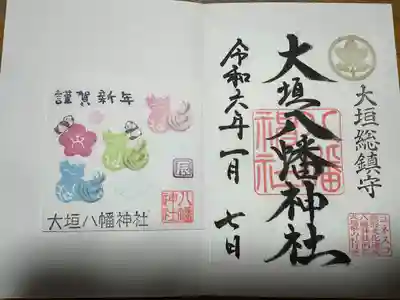 謹賀新年
辰
大垣八幡神社
八幡
神社
大垣総鎮守
大垣八幡神社
令和六年一月七日